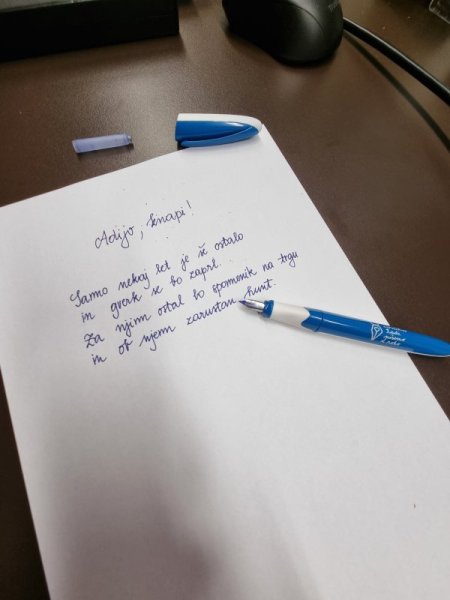 Adijo, knapi!
Samo nekaj let je še ostalo
in gverk se bo zaprl.
Za njim ostal bo spomenik na trgu
in ob njem zarustan hunt.
pišem
z roko